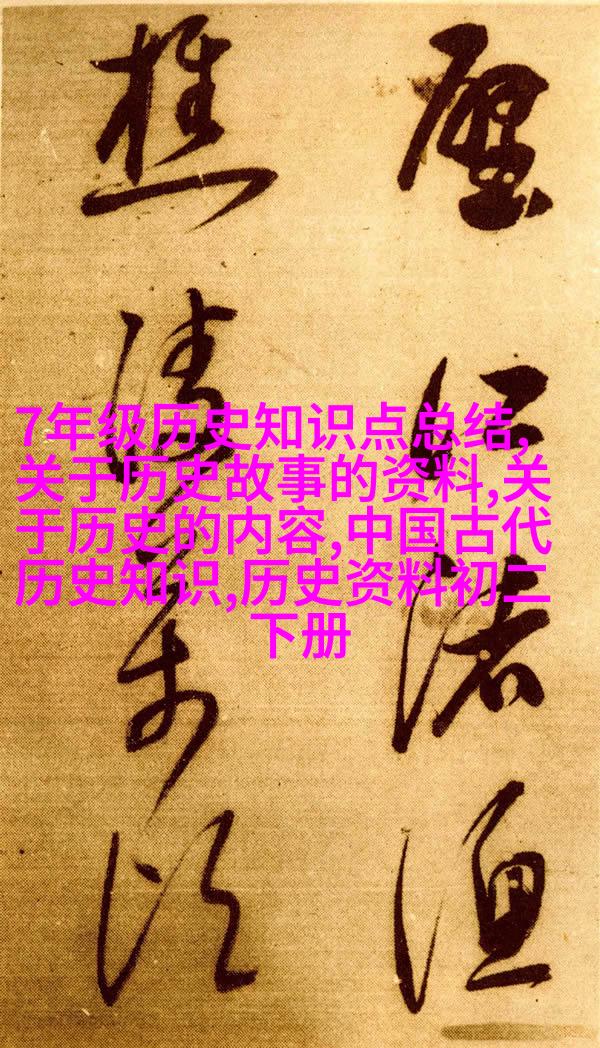 7年级历史知识点总结,
关于历史故事的资料,关
于历史的内容,中国古代
历史知识,历史资料初二
下册
江渚漁
樵